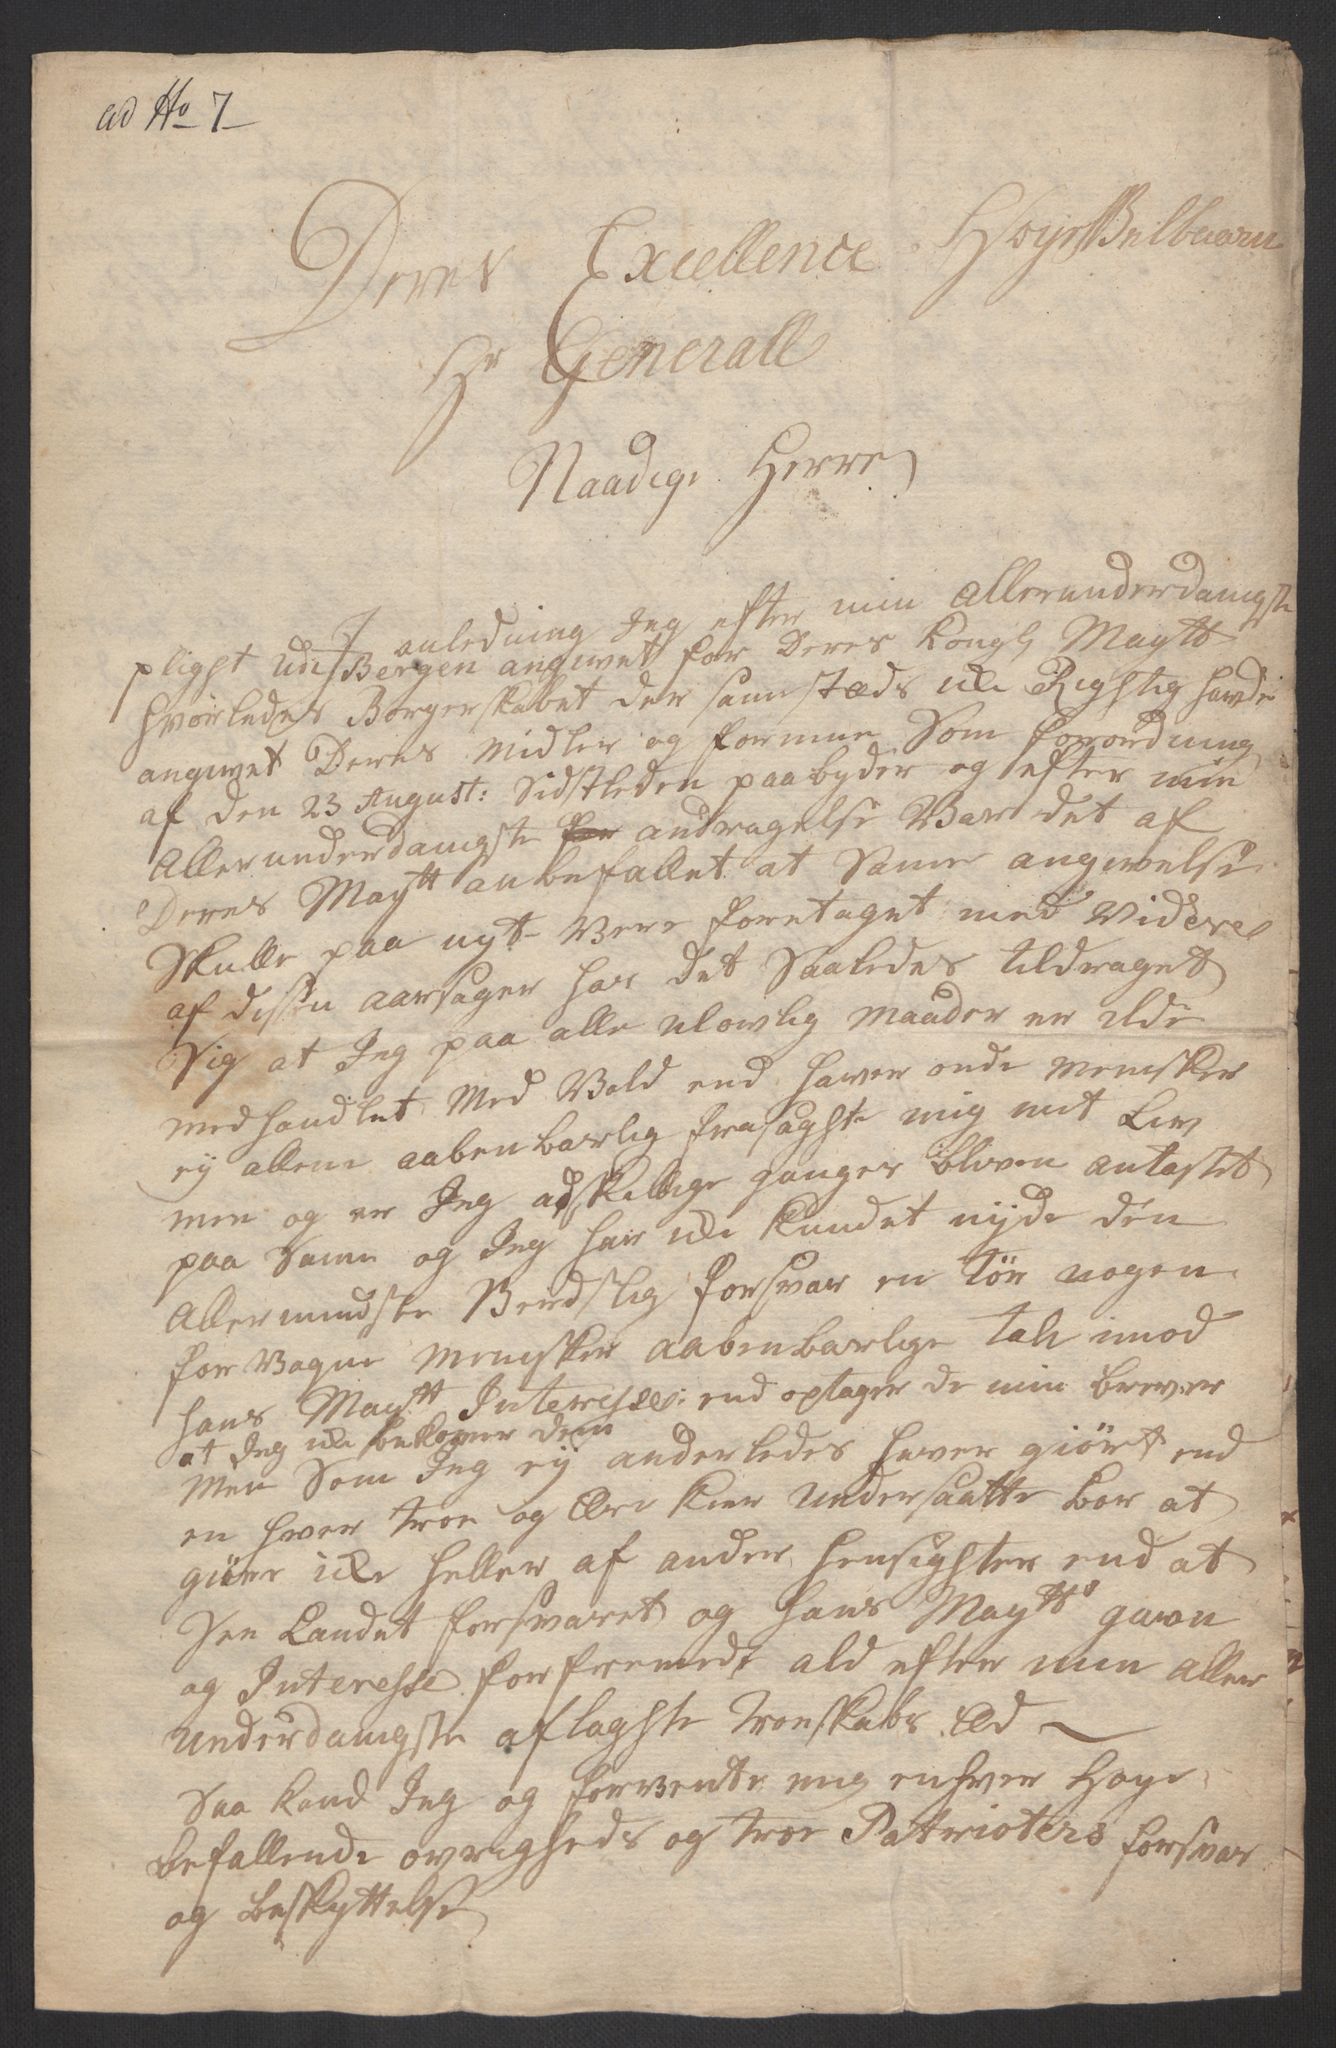 ad No 7
Deres Excellence Høye Velbaarn
Hr Generall
Naadige Herre
I anledning Jeg efter min allerunderdanigste
pligt udi Bergen angivet for Deres Kongl Maytt
hvorledes Borgerskabet der samestæds icke Rigtig hafde
angivet Deres midler og formue Som forordning
af den 23 August: Sidstleden paabyder og efter min
Allerunderdanigste for andragelse Var det af
Deres Maytt anbefallet at Same angivelse
Skulle paa nyt Vere foretaget med Videre
af dissen aarsager har det Saaledes tildraget
Sig at Jeg paa alle ulowlig maader er ilde
medhandlet Med Vold end haver onde menisker
ey allene aabenbarlig frasagte mig mit Liv
men og er Jeg adskellige ganger bleven antastet
paa Same og Jeg har icke kundet nyde den
Allermindste Verdslig forsvar en tør nogen
for Vogne menisker aabenbarlige tale imod
hans Maytt Interesse: end optager de min brever
at Jeg icke bekomer dem
Men Som Jeg ey anderledes haver giørt end
en hver troe og ære kier undersaatte bør at
giøre icke heller af ander hensigter end at
See Landet forsvaret og hans Maytts gavn
og Interesse forfremede ald efter min aller
underdanigste aflagte troeskabs Æd
Saa kand Jeg og forvente mig enhver Høye
befallende øvrigheds og troe Patrioters forsvar
og beskyttelse